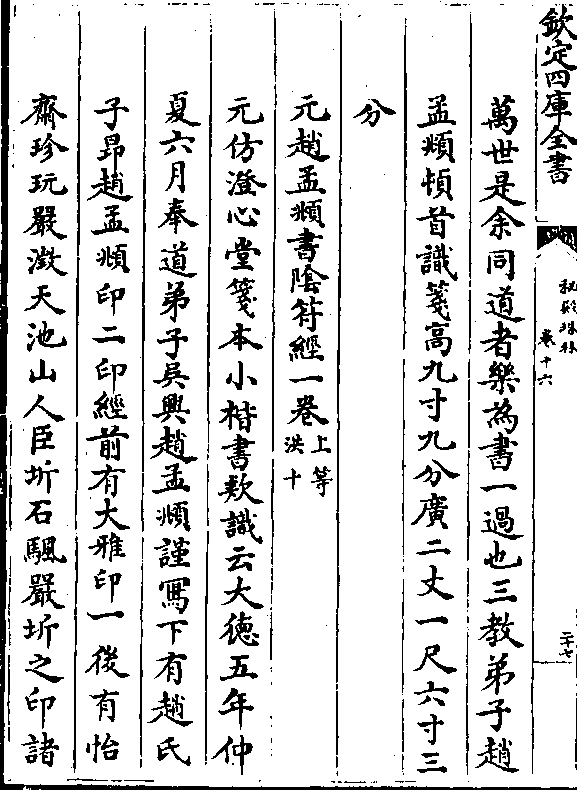 欽定四庫全書
秘殿珠林
卷十六
二十七
萬世是余同道者樂為書一過也三教弟子趙
孟頫頓首識箋高九寸九分廣二丈一尺六寸三
分
元趙孟頫書陰符經一卷上等洪十
元仿澄心堂箋本小楷書款識云大德五年仲
夏六月奉道弟子吳興趙孟頫謹寫下有趙氏
子昂趙孟頫印二印經前有大雅印一後有怡
齋珍玩嚴澂天池山人臣圻石颿嚴圻之印諸